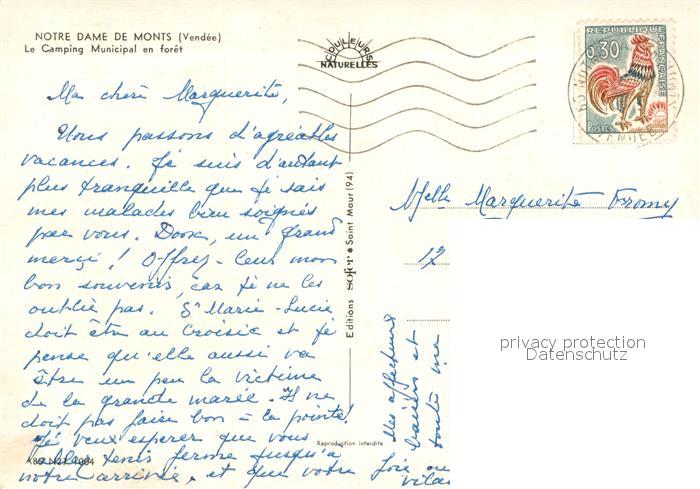 NOTRE DAME DE MONTS (Vendée)
Le Camping Municipal en forêt
COULEURS
NATURELLES
REPUBLIQUE FRANÇAISE
0,30
POSTES
VENDEE
Ma chère Marguerite,
Nous passons d'agréables
vacances. Je suis d'autant
plus tranquille que je sais
mes malades bien soignés
par vous. Donc, un grand
merci! Offrez-leur mon
bon souvenir, car je ne les
oublie pas. Sr Marie-Lucie
doit être au Croisic et je
pense qu'elle aussi va
être un peu la victime
de la grande marée. Il ne
doit pas faire bon à la pointe!
Je veux espérer que vous
allez tenir ferme jusqu'à
notre arrivée, et que votre joie
Mes affectueux
baisers et
toute ma
Melle Marguerite Fromy
12
Editions sofer Saint Maur (94)
Reproduction interdite
privacy protection
Datenschutz